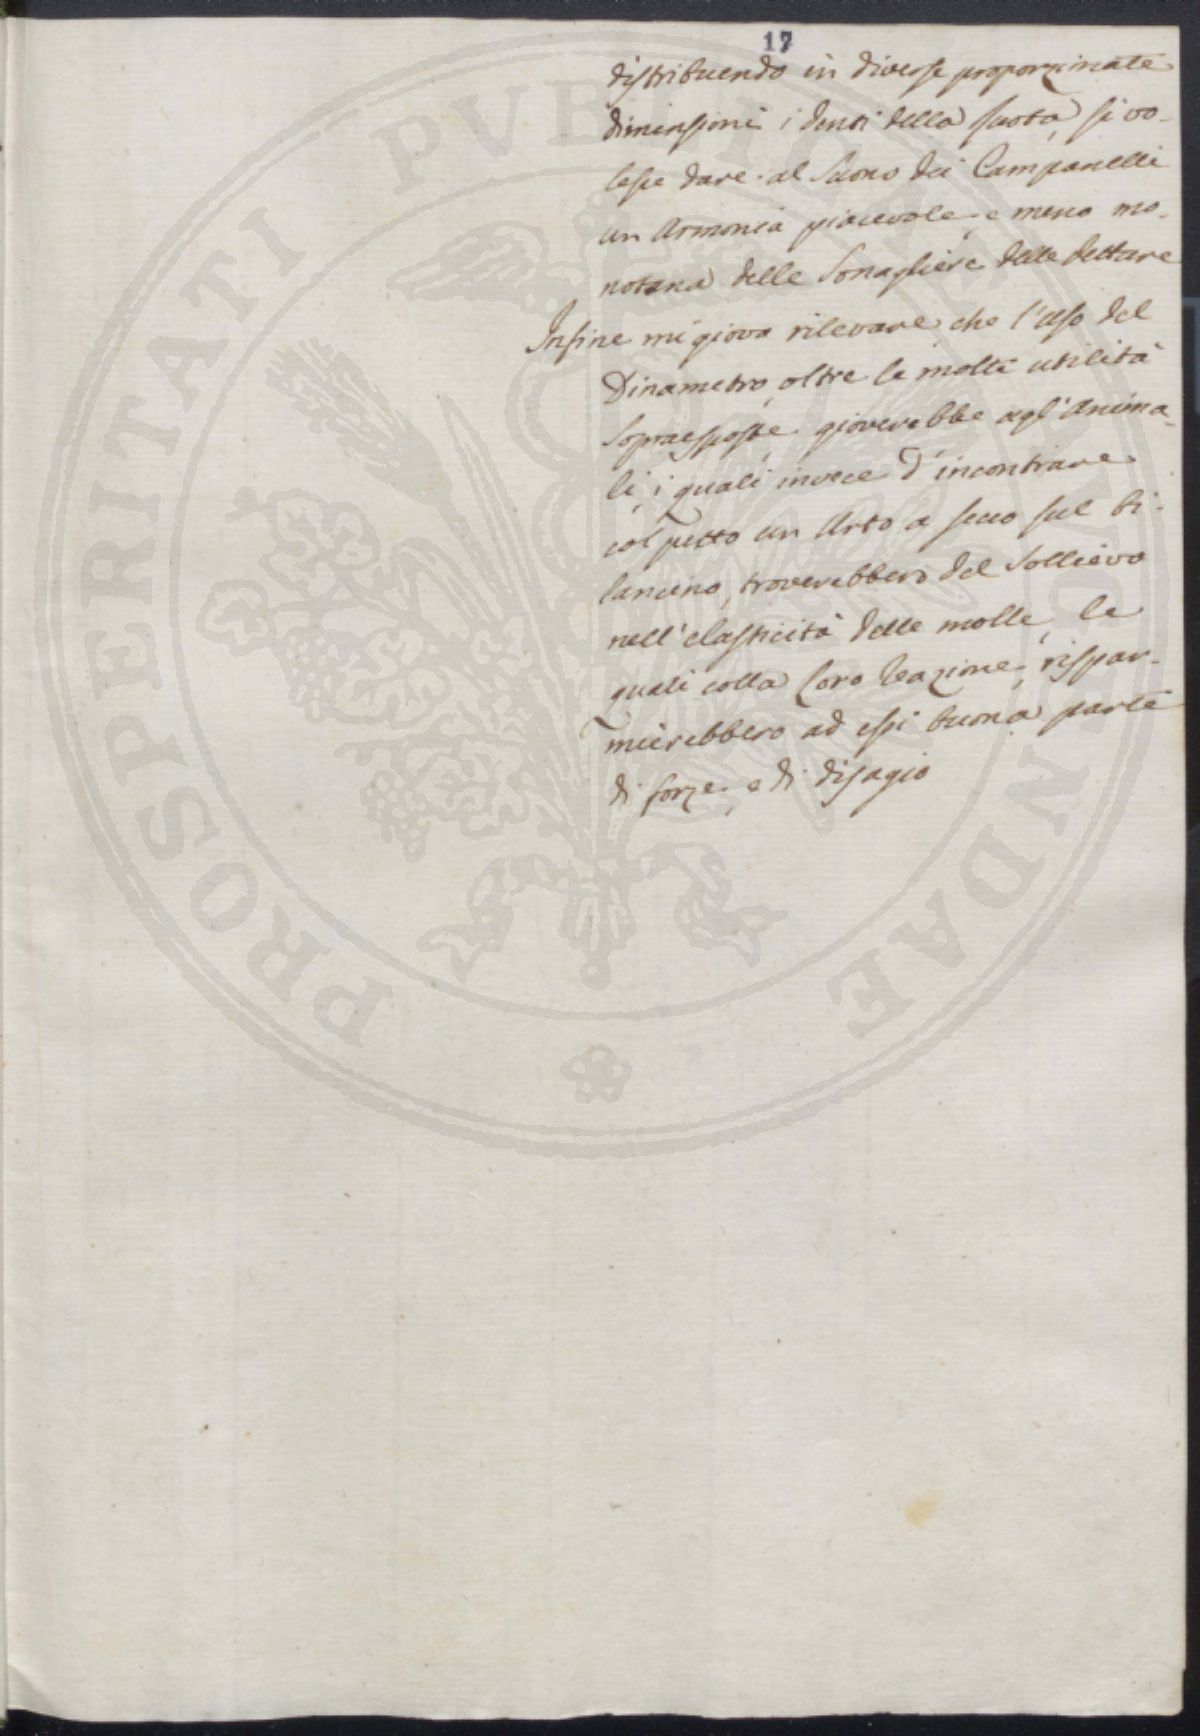 17
distribuendo in diverse proporzionate
dimensioni i denti della ruota, si vo-
lesse dare al suono dei Campanelli
un Armonia piacevole, e meno mo-
notana delle Sonagliere delle Lettare
Infine mi giova rilevare, che l'uso del
Dinametro, oltre le molte utilità
sopraesposte, gioverebbe agl'Anima-
li, i quali invece d'incontrare
col petto un Urto a secco sul bi-
lancino, troverebbero del Sollievo
nell'elasticità delle molle, le
quali colla loro reazione, rispar-
mierebbero ad essi buona parte
di forze, e di disagio
PROSPERITATI PUBLICAE AUGENDAE